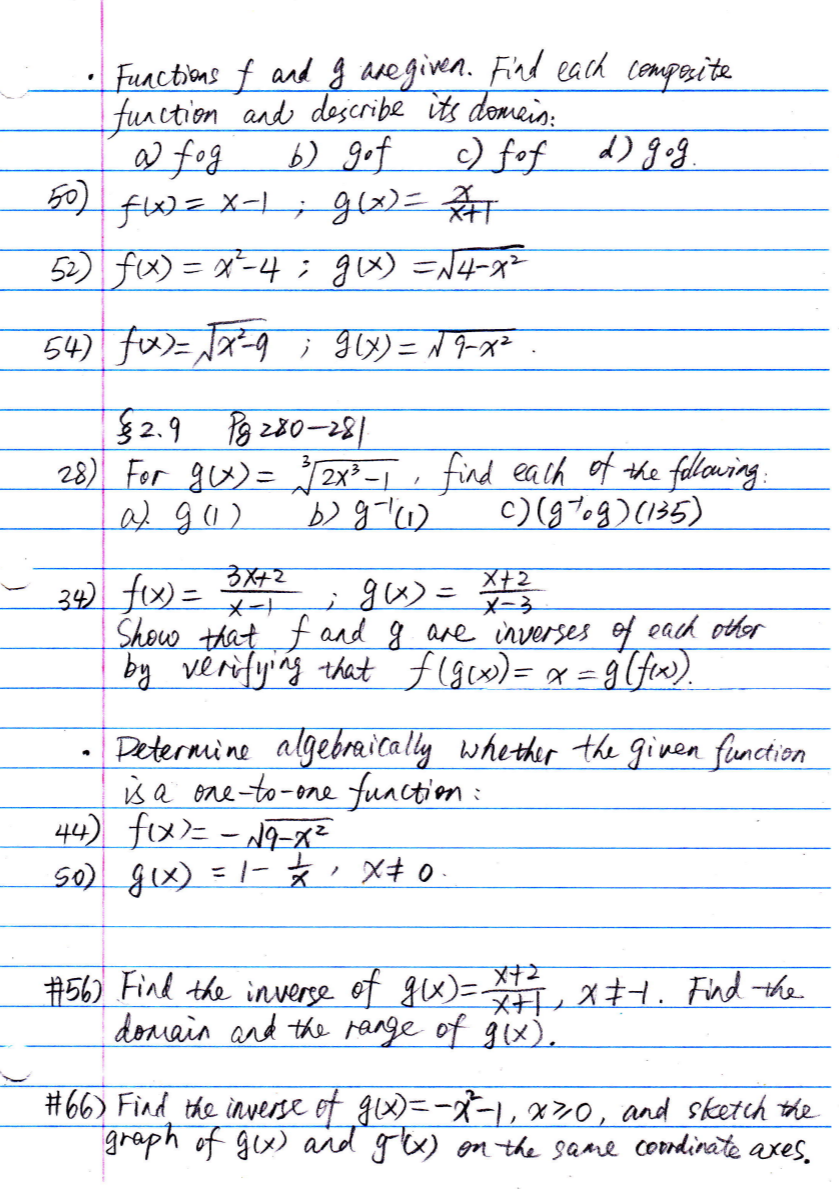 • Functions f and g are given. Find each composite
function and describe its domain:
a) f∘g b) g∘f c) f∘f d) g∘g.
50) f(x) = x-1 ; g(x) = x/(x+1)
52) f(x) = x²-4 ; g(x) = √(4-x²)
54) f(x) = √(x²-9) ; g(x) = √(9-x²) .
§2.9 Pg 280-281
28) For g(x) = ∛(2x³-1) , find each of the following:
a). g(1) b) g⁻¹(1) c) (g⁻¹∘g)(135)
34) f(x) = (3x+2)/(x-1) ; g(x) = (x+2)/(x-3)
Show that f and g are inverses of each other
by verifying that f(g(x)) = x = g(f(x)).
• Determine algebraically whether the given function
is a one-to-one function :
44) f(x) = -√(9-x²)
50) g(x) = 1 - 1/x , x ≠ 0.
#56) Find the inverse of g(x) = (x+2)/(x+1) , x ≠ -1. Find the
domain and the range of g(x).
#66) Find the inverse of g(x) = -x²-1, x ≥ 0, and sketch the
graph of g(x) and g⁻¹(x) on the same coordinate axes.